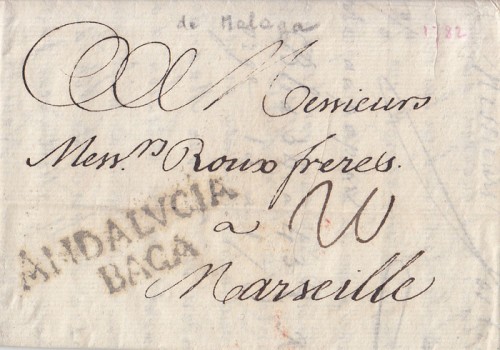 de Malaga
1782
Messieurs
Mess.rs Roux freres.
a
ANDALVCIA
BAGA
Marseille